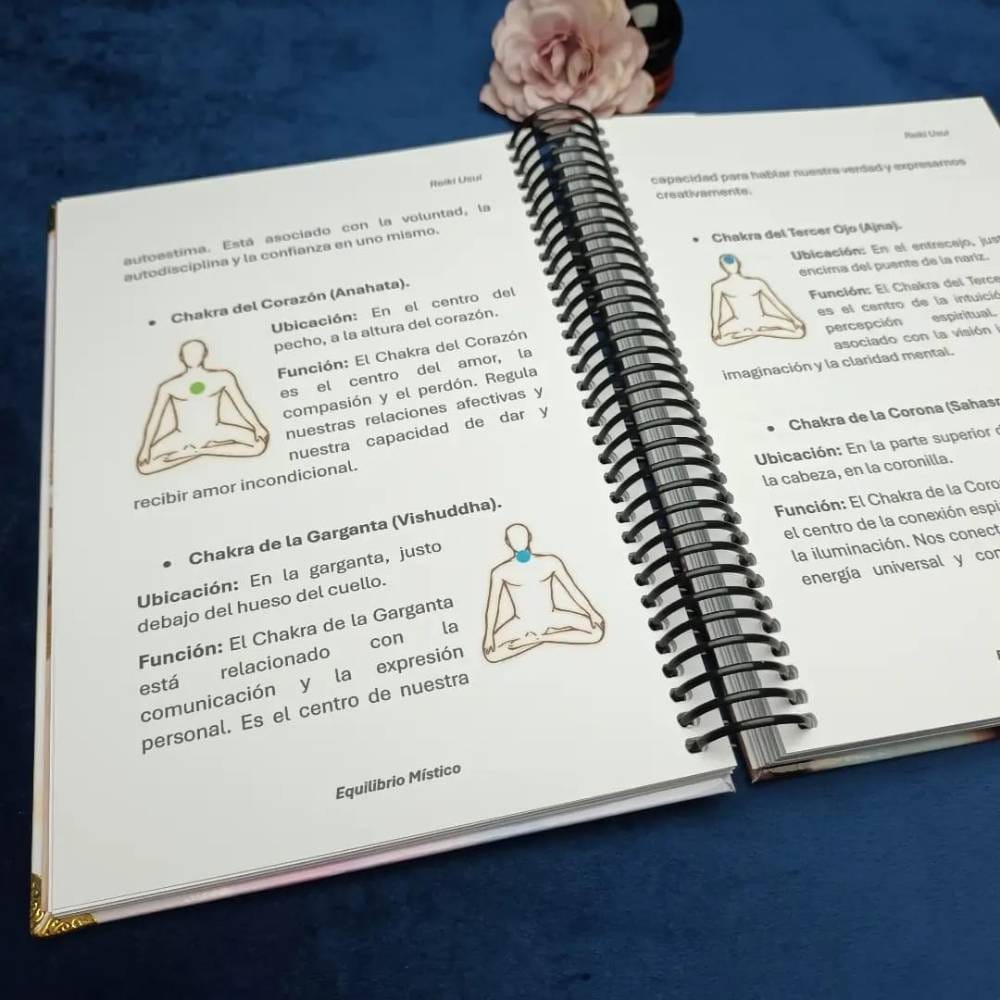 Reiki Usui
autoestima. Está asociado con la voluntad, la
autodisciplina y la confianza en uno mismo.
• Chakra del Corazón (Anahata).
Ubicación: En el centro del
pecho, a la altura del corazón.
Función: El Chakra del Corazón
es el centro del amor, la
compasión y el perdón. Regula
nuestras relaciones afectivas y
nuestra capacidad de dar y
recibir amor incondicional.
• Chakra de la Garganta (Vishuddha).
Ubicación: En la garganta, justo
debajo del hueso del cuello.
Función: El Chakra de la Garganta
está relacionado con la
comunicación y la expresión
personal. Es el centro de nuestra
Equilibrio Místico
Reiki Usui
capacidad para hablar nuestra verdad y expresarnos
creativamente.
• Chakra del Tercer Ojo (Ajna).
Ubicación: En el entrecejo, just
encima del puente de la nariz.
Función: El Chakra del Terce
es el centro de la intuició
percepción espiritual.
asociado con la visión
imaginación y la claridad mental.
• Chakra de la Corona (Sahasr
Ubicación: En la parte superior d
la cabeza, en la coronilla.
Función: El Chakra de la Coro
el centro de la conexión espi
la iluminación. Nos conect
energía universal y con